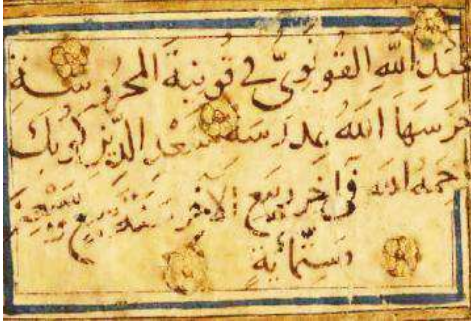 عبد الله القونويّ في قونية المحروسة
حرسها الله بمدرسة سعد الدين كوبك
رحمه الله في اخر ربيع الآخر سنة سبع وسبعين
وستمائة